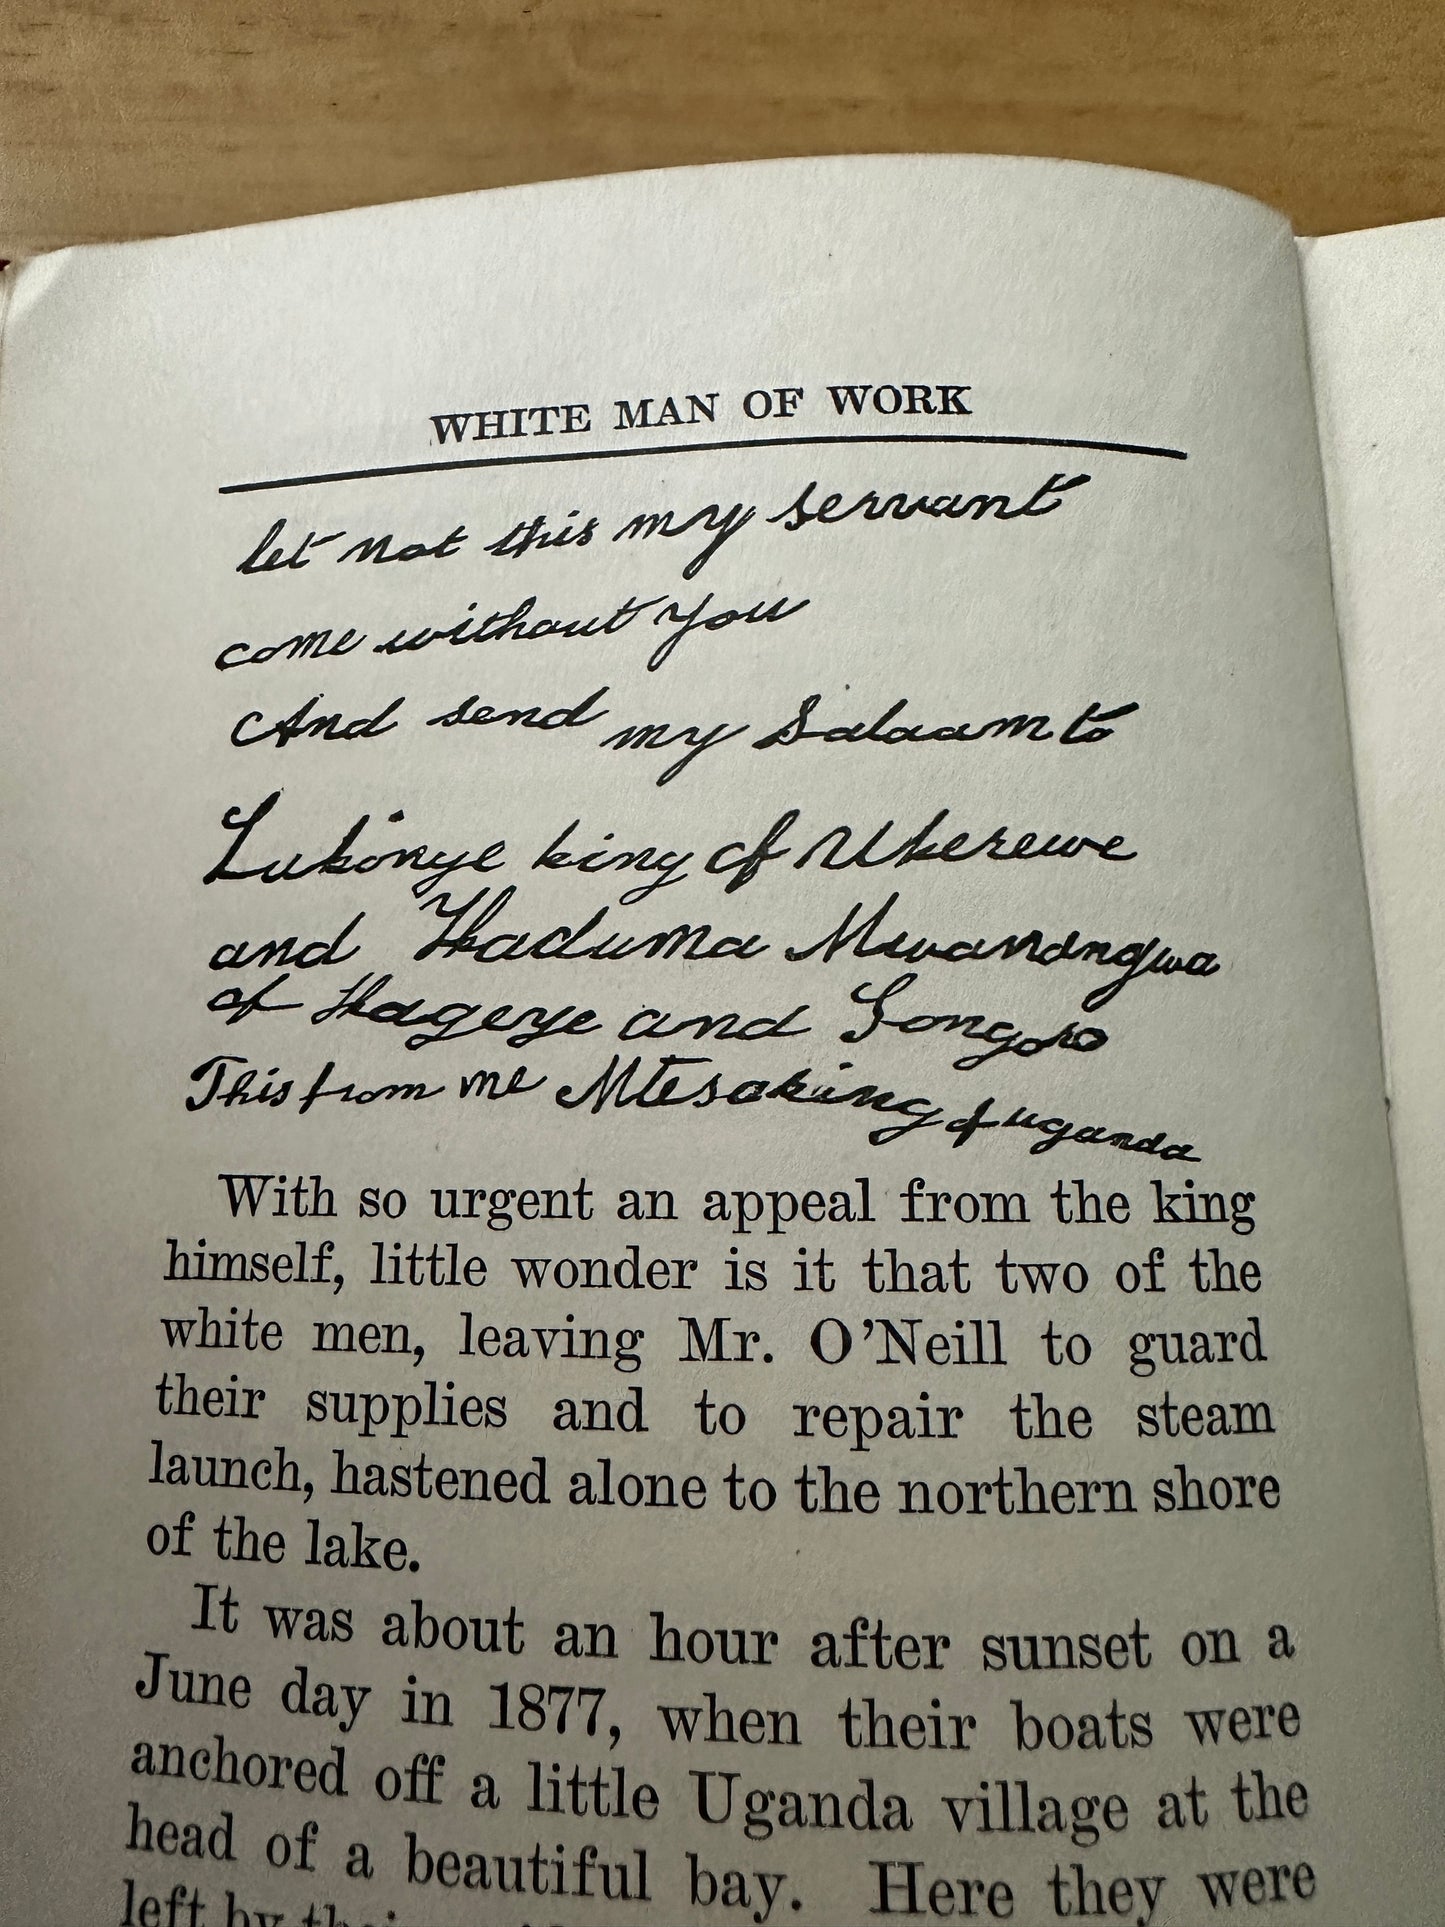 WHITE MAN OF WORK
let not this my servant
come without you
And send my Salaam to
Lukonge king of Ukerewe
and Kaduma Mwanangwa
of Kageye and Songoro
This from me Mtesa king of uganda
With so urgent an appeal from the king
himself, little wonder is it that two of the
white men, leaving Mr. O'Neill to guard
their supplies and to repair the steam
launch, hastened alone to the northern shore
of the lake.
It was about an hour after sunset on a
June day in 1877, when their boats were
anchored off a little Uganda village at the
head of a beautiful bay. Here they were
left by